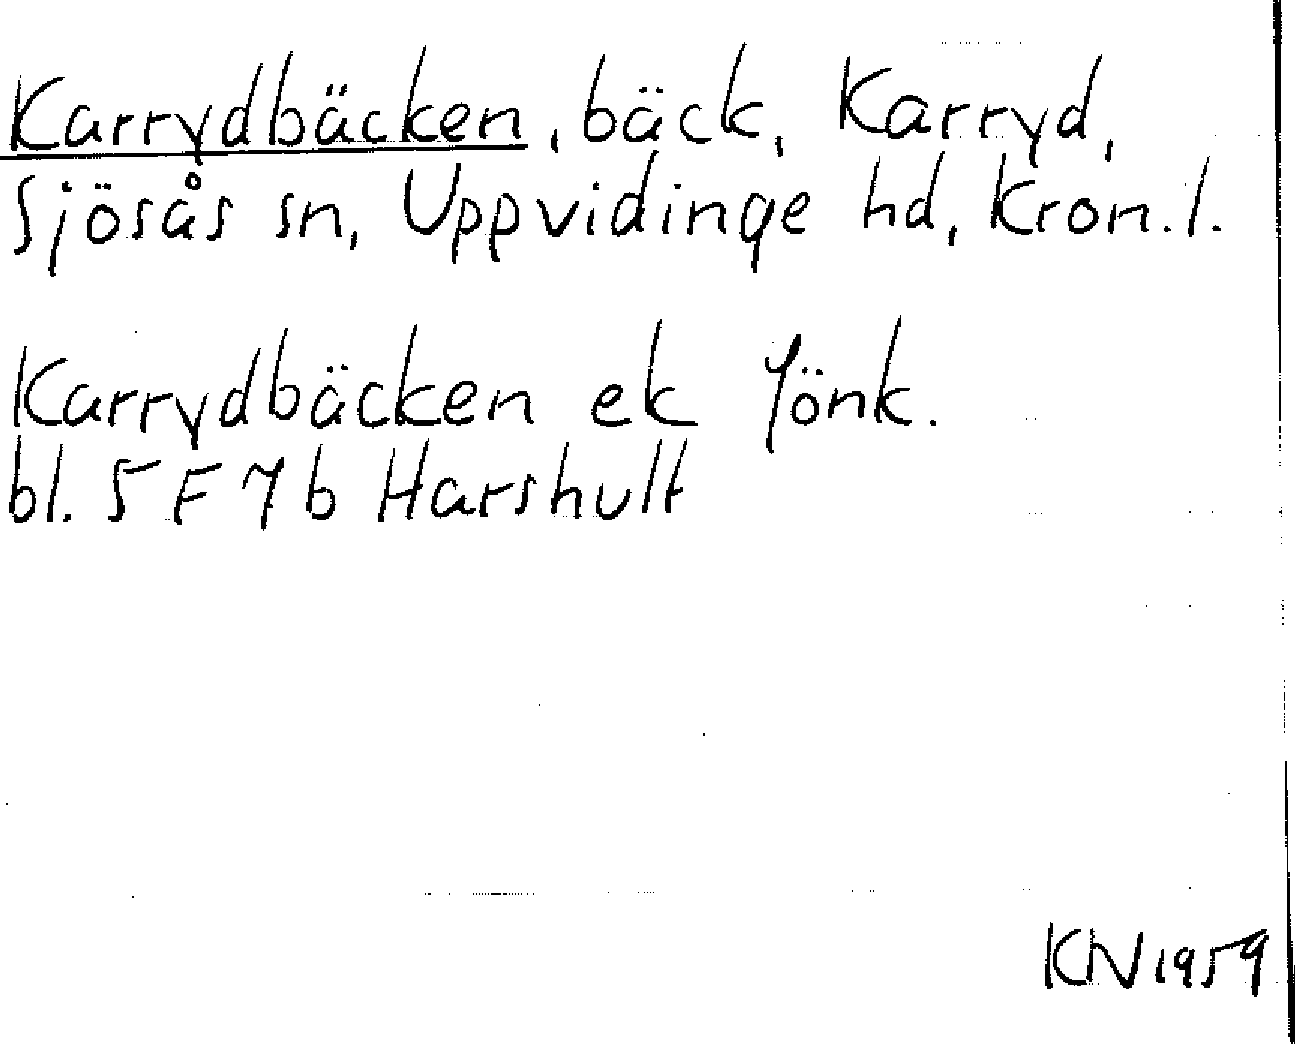 Karrydbäcken, bäck, Karryd,
Sjösås sn, Uppvidinge hd, Kron.l.
Karrydbäcken ek Jönk.
bl. 5 F 7 b Harshult
KN 1959